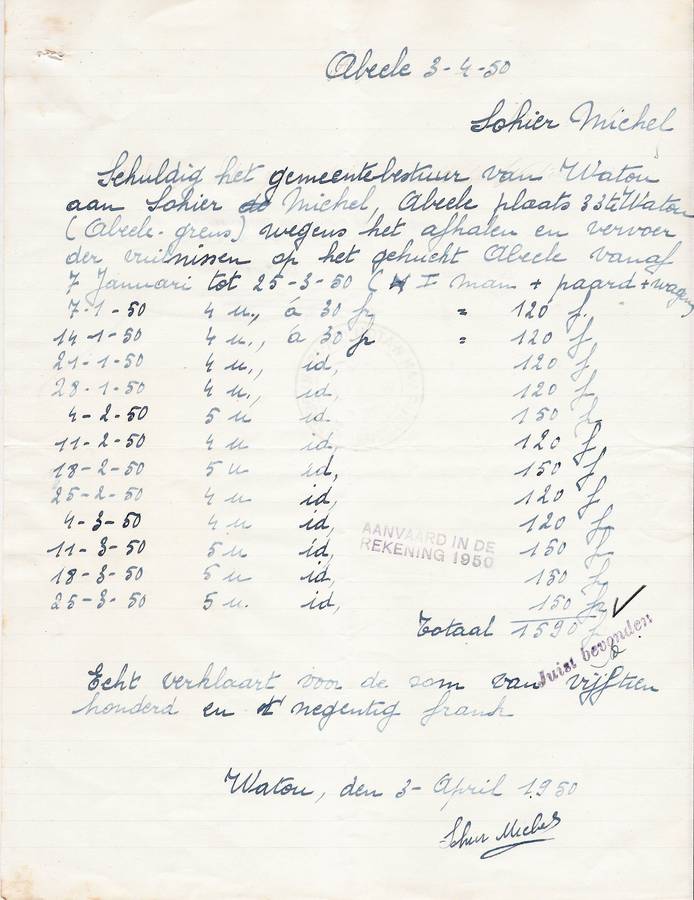 Abeele 3-4-50
Sohier Michel
Schuldig het gemeentebestuur van Watou
aan Sohier Michel, Abeele plaats 33 te Watou
(Abeele-grens) wegens het afhalen en vervoer
der vuilnissen op het gehucht Abeele vanaf
7 Januari tot 25-3-50 (1 man + paard + wagen)
7-1-50 4 u., à 30 fr = 120 f.
14-1-50 4 u., à 30 fr = 120 f
21-1-50 4 u., id, 120 f
28-1-50 4 u., id, 120 f
4-2-50 5 u id. 150 f
11-2-50 4 u id, 120 f
18-2-50 5 u id, 150 f
25-2-50 4 u id, 120 f
4-3-50 4 u id, 120 f
11-3-50 5 u id, 150 f
18-3-50 5 u id, 150 f
25-3-50 5 u. id, 150 fr
AANVAARD IN DE
REKENING 1950
Totaal 1590 f
Juist bevonden
Echt verklaart voor de som van vijftien
honderd en negentig frank
Watou, den 3- April 1950
Sohier Michel